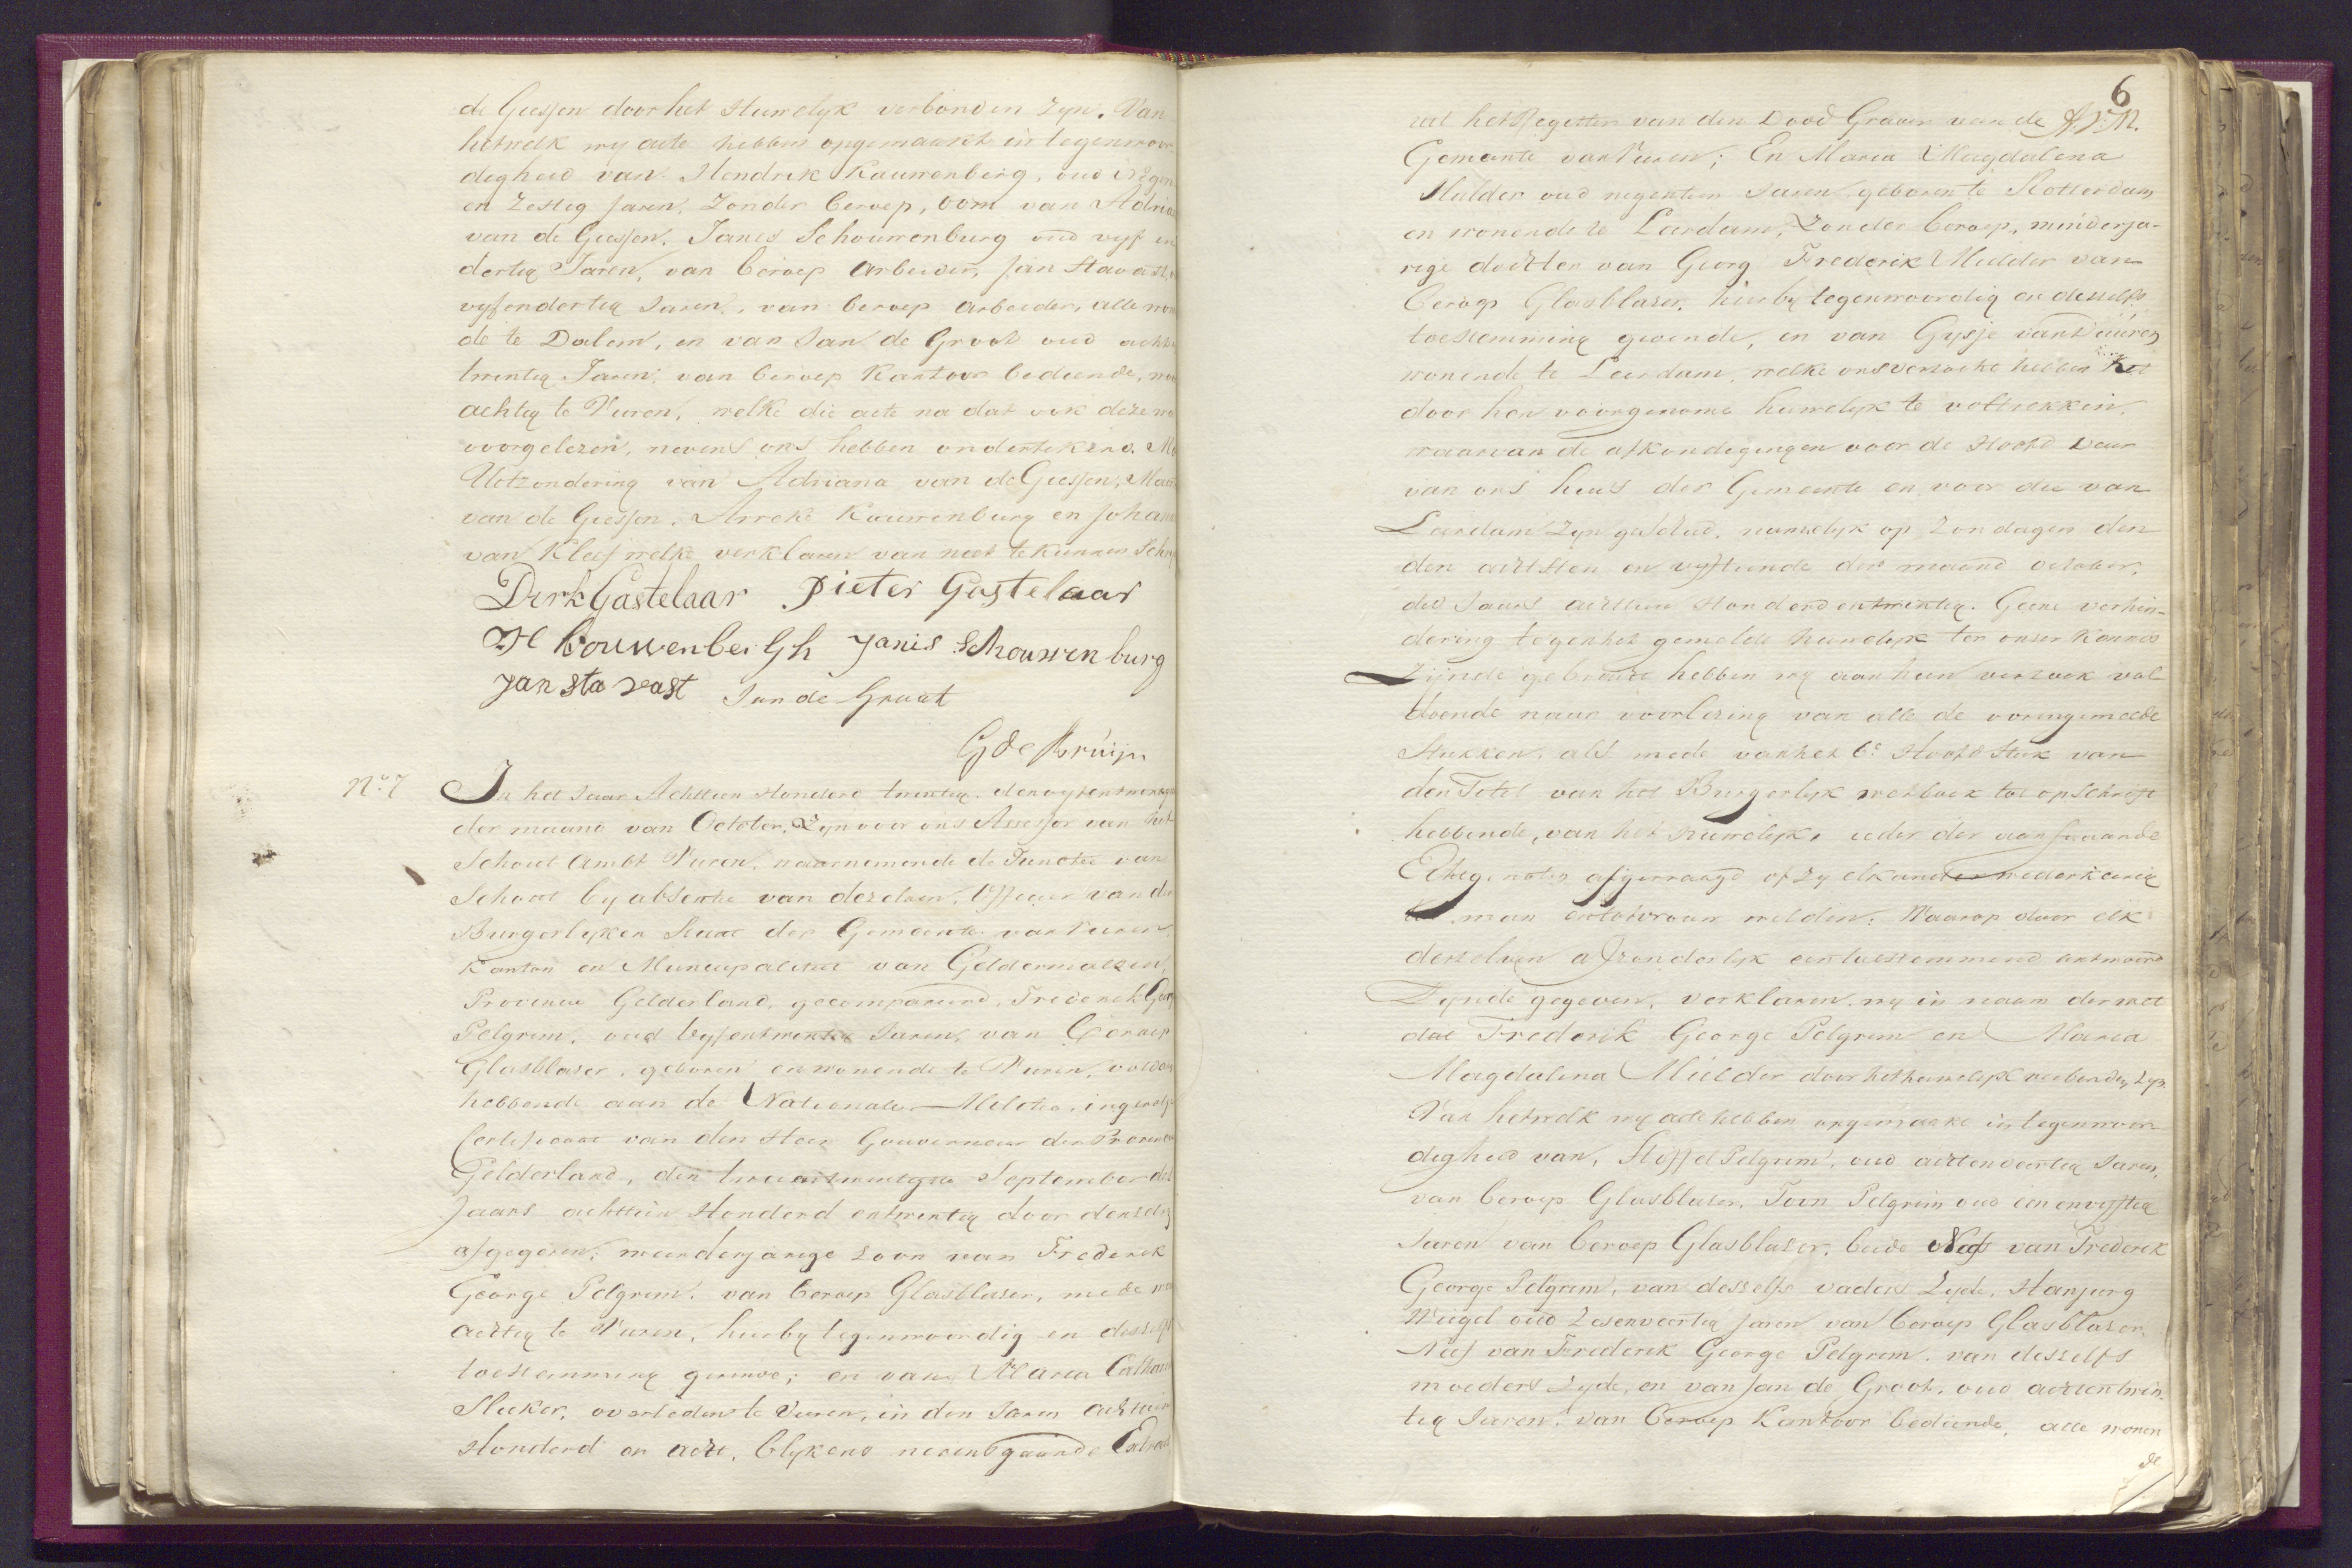 de Giessen door het Huwelyk verbonden zyn. Van
hetwelk wy acte hebben opgemaakt in tegenwoor
digheid van Hendrik Kauwenberg, oud Negen
en Zestig Jaren, Zonder beroep, oom van Adria
van de Giessen, Janis Schouwenburg oud vyf en
dertig Jaren, van beroep Arbeider, Jan Stavast,
vyfendertig Jaren, van beroep Arbeider, alle won
de te Dalem, en van Jan de Groot oud acht
twintig Jaren, van beroep Kantoor bediende, wo
achtig te Vuren, welke die acte na dat ook deze
voorgelezen, nevens ons hebben ondertekend. Me
Uitzondering van Adriana van de Giessen, Mar
van de Giessen, Anneke Kauwenburg en Johan
van Kleef welke verklaren van niet te kunnen Schry
Derk Gastelaar Pieter Gastelaar
H Kouwenbergh Janis Schouwenburg
Jan sta vast Jan de Groot
G de Bruijn
No. 7 In het Jaar Achttien Honderd twintig, den vyfentwintig
der maand van October, Zyn voor ons Assessor van het
Schout Ambt Vuren, waarnemende de Functie van
Schout by absentie van dezelven, Officier van de
Burgerlyken Staat der Gemeente van Vuren
Kanton en Municipaliteit van Geldermalsen,
Provincie Gelderland, gecompareerd, Frederik Geor
Pelgrim, oud Vyfentwintig Jaren, van Beroep
Glasblazer, geboren en wonende te Vuren, voldaan
hebbende aan de Nationale Militie, ingevolge
Certificaat van den Heer Gouverneur der Provincie
Gelderland, den tweeentwintigste September des
Jaars achttien Honderd entwintig door denzelve
afgegeven, meerderjarige zoon van Frederik
George Pelgrim, van beroep Glasblazer, mede wo
achtig te Vuren, hierby tegenwoordig en desself
toestemming gevende; en van Maria Catharin
Sluker, overleden te Vuren, in den Jaren achttien
Honderd en acht, blykens nevensgaande Extract
6
uit het Register van den Dood Graver van de
Gemeente van Vuren; En Maria Magdalena
Mulder oud negentien Jaren geboren te Rotterdam
en wonende te Leerdam, Zonder beroep, minderja-
rige dochter van Georg Frederik Mulder van
beroep Glasblazer, hierby tegenwoordig en desselfs
toestemming gevende, en van Gysje van Duuren
wonende te Leerdam, welke ons verzocht hebben het
door hen voorgenome huwelyk te voltrekken,
waarvan de afkondigingen voor de Hoofd Deur
van ons huis der Gemeente en voor die van
Leerdam Zyn geschied, namelyk op Zondagen den
den achtsten en vyftiende der maand october,
des Jaars achttien Honderd entwintig. Geene verhin-
dering tegen het gemelde huwelyk ter onser kennis
Zynde gebracht hebben wy aan hun verzoek vol
doende naar voorlezing van alle de voorengemelde
Stukken, als mede van het 6e Hoofd Stuk van
den Titel van het Burgerlyk wetboek tot opschrift
hebbende, van het Huwelyk, ieder der aanstaande
Echtgenoten afgevraagd of zy elkander wederkeerig
tot man en tot vrouw wilden. Waarop door elk
derzelven afzonderlyk een toestemmend antwoord
Zynde gegeven, verklaren wy in naam der wet
dat Frederik George Pelgrim en Maria
Magdalena Mulder door het huwelyk verbonden zyn.
Van hetwelk wy acte hebben opgemaakt in tegenwoor
digheid van, Stoffel Pelgrim, oud achtenveertig Jaren,
van beroep Glasblazer, Toon Pelgrim oud een envyftig
Jaren van beroep Glasblazer, beide Neef van Frederik
George Pelgrim, van desselfs vaders Zyde, Hanjurg
Weigel oud Zesenveertig Jaren van beroep Glasblazer,
Neef van Frederik George Pelgrim, van desselfs
moeders Zyde, en van Jan de Groot, oud achtentwin-
tig Jaren, van beroep Kantoor bediende, alle wonen
de